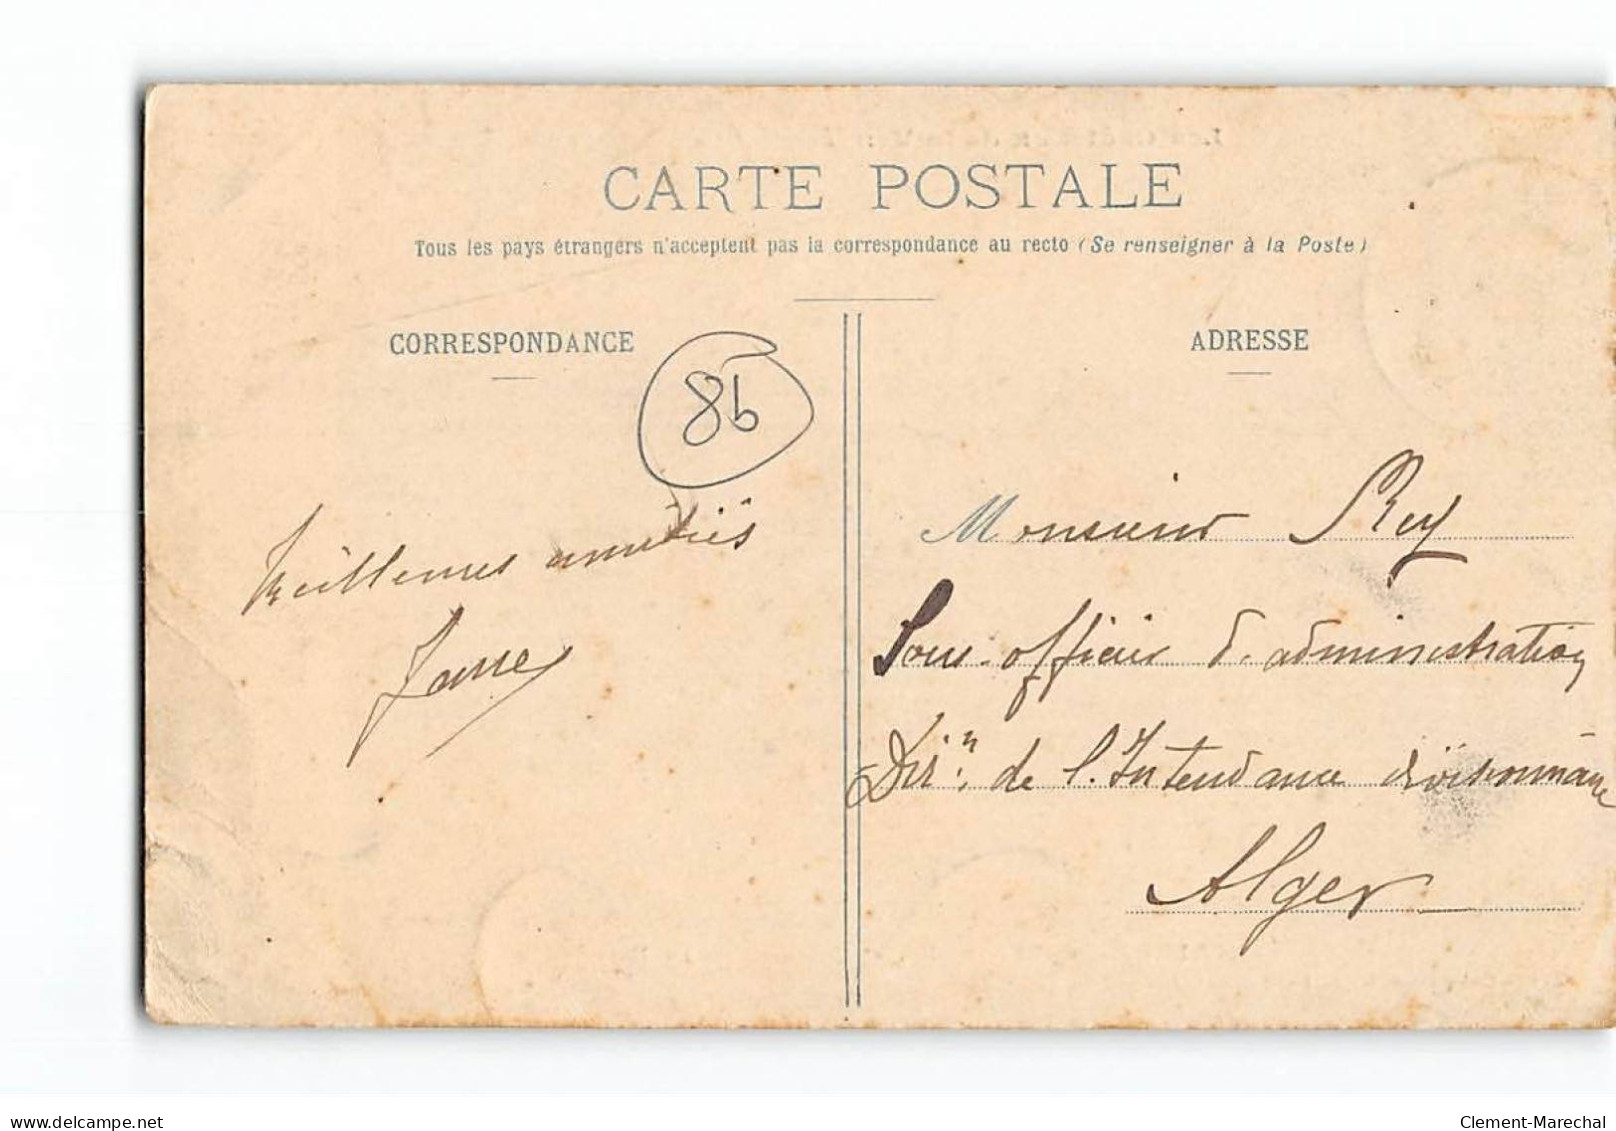 CARTE POSTALE
Tous les pays étrangers n'acceptent pas la correspondance au recto (Se renseigner à la Poste)
CORRESPONDANCE
ADRESSE
86
Meilleures amitiés
Monsieur Rey
Sous-officier d'administration
Dir.n de l'Intendance divisionnaire
Alger
www.delcampe.net
Clement-Marechal